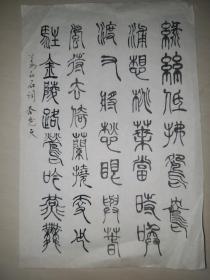 綠絲低拂鴛鴦
浦想桃葉當時喚
渡又將愁眼與春
風待去倚蘭橈更少
駐金陵路鶯吟燕舞
姜白石詞